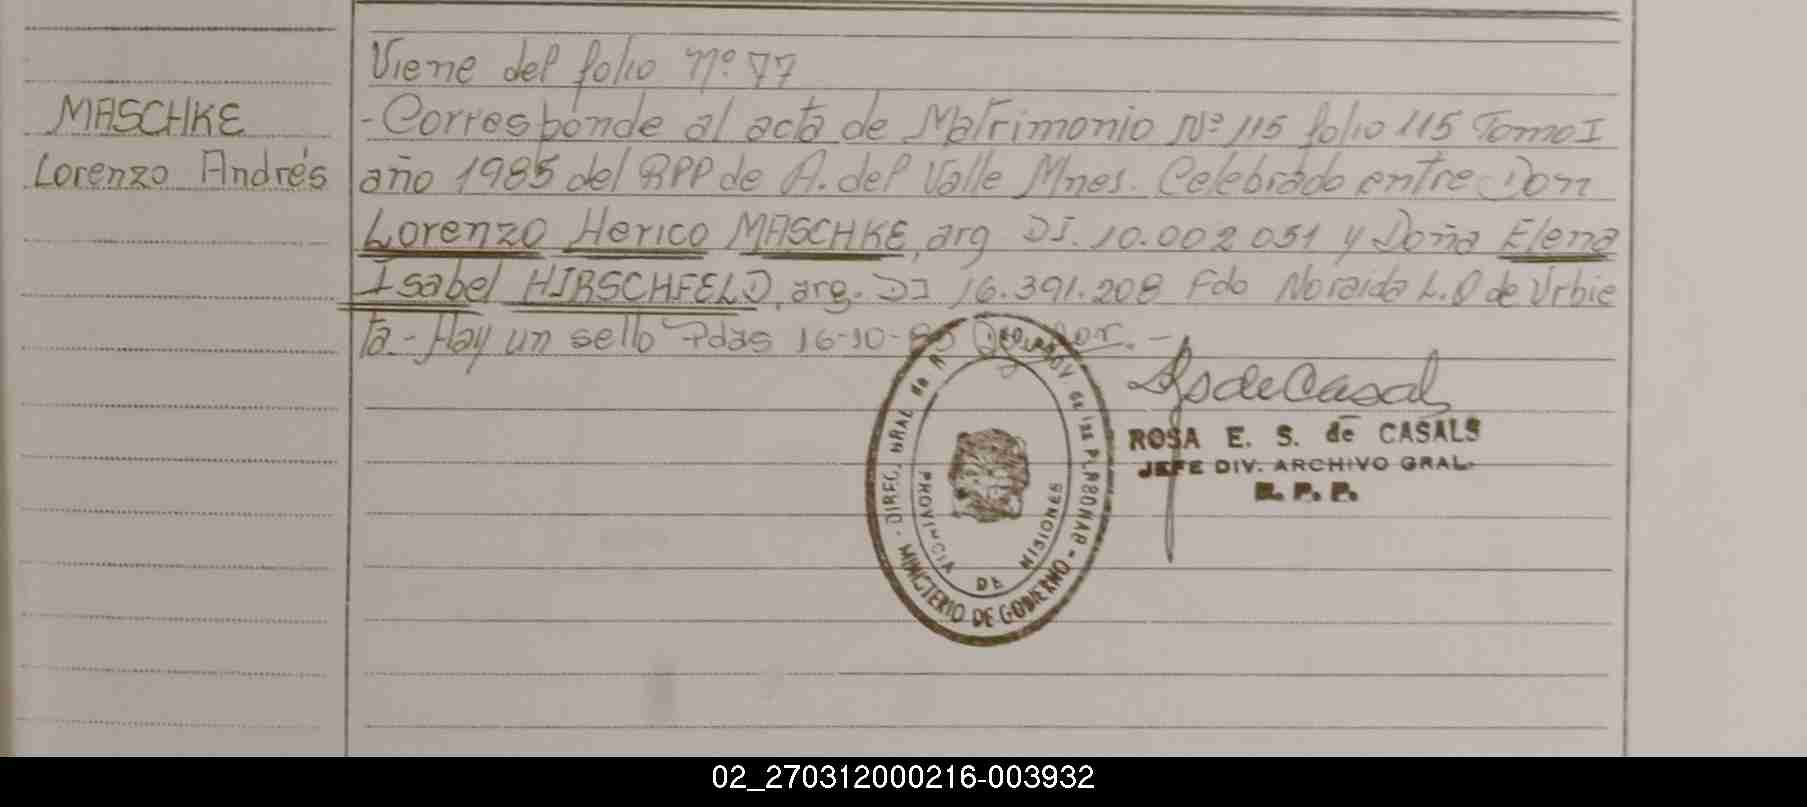 Viene del folio Nº 77
MASCHKE
Lorenzo Andrés
-Corresponde al acta de Matrimonio Nº 115 folio 115 Tomo I
año 1985 del RPP de A. del Valle Mnes. Celebrado entre Don
Lorenzo Herico MASCHKE, arg DI. 10.002.051 y Doña Elena
Isabel HIRSCHFELD, arg. DI 16.391.208 Fdo Noraida L. O de Urbie
ta.- Hay un sello Pdas 16-10-85
ROSA E. S. de CASALS
JEFE DIV. ARCHIVO GRAL.
R. P. P.
MINISTERIO DE GOBIERNO
PROVINCIA DE MISIONES
02_270312000216-003932